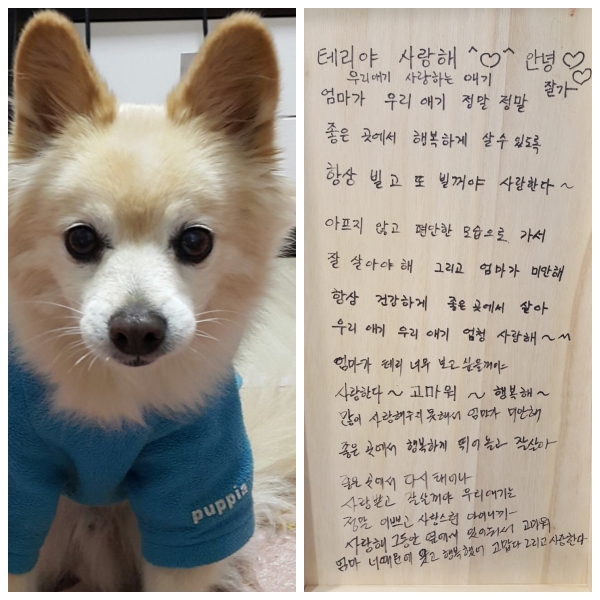 puppia
테리야 사랑해 ^♡^ 안녕 ♡
우리애기 사랑하는 애기 잘가~ ♡
엄마가 우리 애기 정말 정말
좋은 곳에서 행복하게 살수 있도록
항상 빌고 또 빌꺼야 사랑한다~
아프지 않고 편단한 모습으로 가서
잘 살아야 해 그리고 엄마가 미안해
항상 건강하게 좋은 곳에서 살아
우리 애기 우리 애기 엄청 사랑해~
엄마가 테리 너무 보고 싶을꺼야
사랑한다~ 고마워~ 행복해~
많이 사랑해주지 못해서 엄마가 미안해
좋은 곳에서 행복하게 뛰어놀고 잘살아
좋은 곳에서 다시 태어나
사랑받고 잘살꺼야 우리애기는
정말 이쁘고 사랑스런 아이니까
사랑해 그동안 옆에 있어줘서 고마워
엄마 너때문에 웃고 행복했어 고맙다 그리고 사랑한다